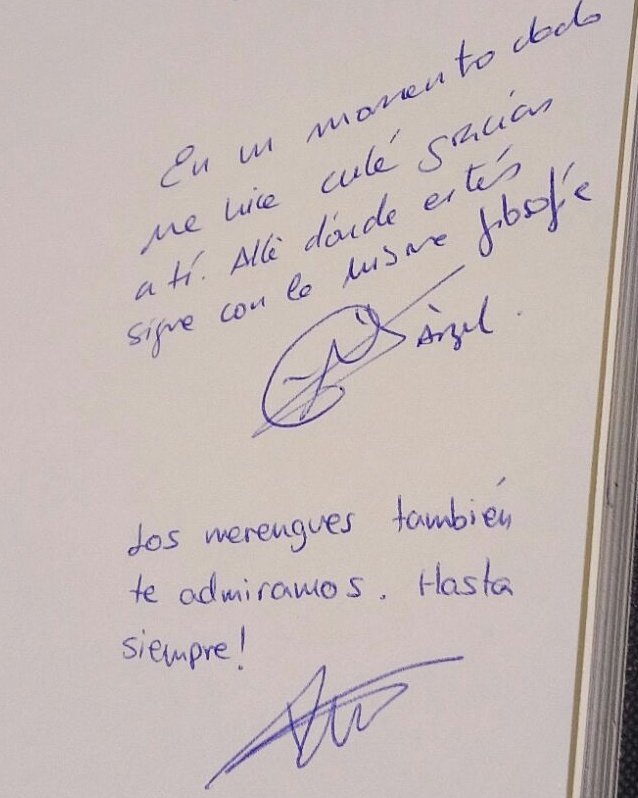 En un momento dado
me hice culé gracias
a tí. Allè dónde estés
sigue con la misma filosofía
Àngel.
Los merengues también
te admiramos. Hasta
siempre!